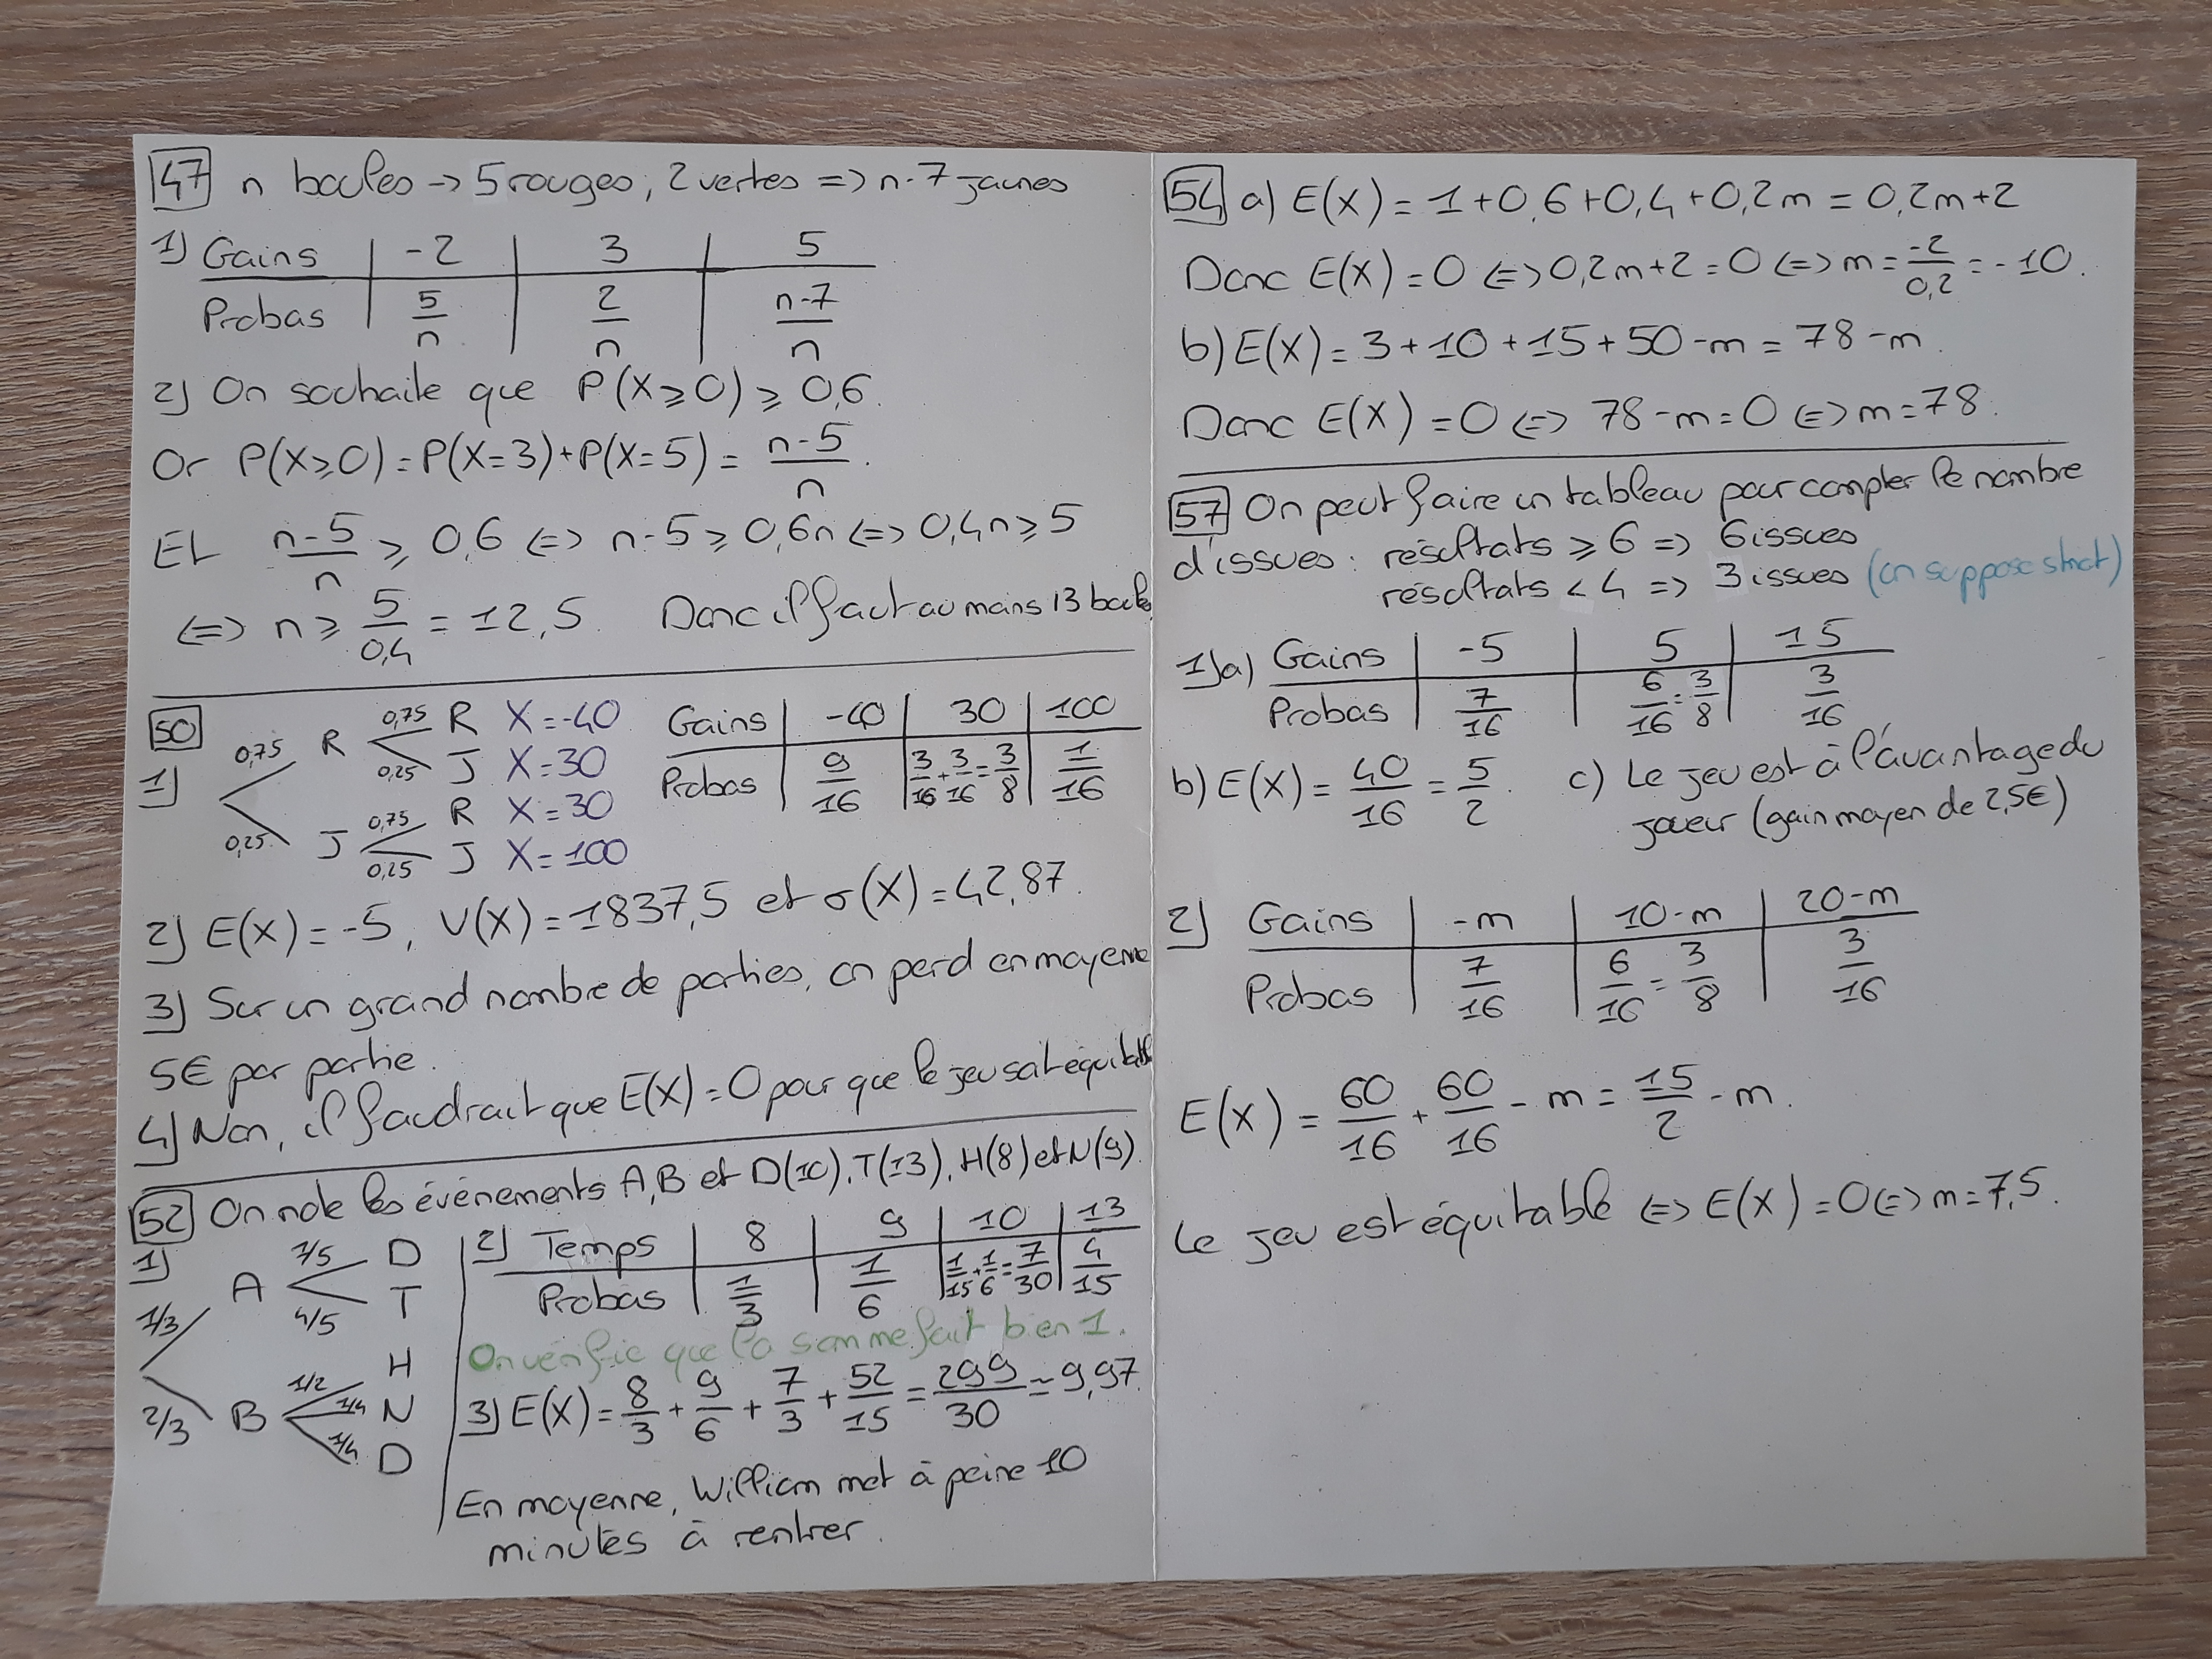 47 n boules → 5 rouges, 2 vertes => n-7 jaunes
1) Gains | -2 | 3 | 5
Probas | 5/n | 2/n | n-7/n
2) On souhaite que P(X≥0) ≥ 0,6.
Or P(X≥0) = P(X=3)+P(X=5) = n-5/n.
Et n-5/n ≥ 0,6 <=> n-5 ≥ 0,6n <=> 0,4n ≥ 5
<=> n ≥ 5/0,4 = 12,5. Donc il faut au moins 13 boules
50
1) 0,75 R 0,75 R X=-40
0,25 J X=30
0,25 J 0,75 R X=30
0,25 J X=100
Gains | -40 | 30 | 100
Probas | 9/16 | 3/16+3/16=3/8 | 1/16
2) E(X) = -5, V(X) = 1837,5 et σ(X) = 42,87.
3) Sur un grand nombre de parties, on perd en moyenne
5€ par partie.
4) Non, il faudrait que E(X) = 0 pour que le jeu soit équitable
52 On note les événements A, B et D(10), T(13), H(8) et N(9)
1) 1/3 A 1/5 D
4/5 T
2/3 B 1/2 H
1/4 N
1/4 D
2) Temps | 8 | 9 | 10 | 13
Probas | 1/3 | 1/6 | 1/15+1/6=7/30 | 4/15
On vérifie que la somme fait bien 1.
3) E(X) = 8/3 + 9/6 + 7/3 + 52/15 = 299/30 ≃ 9,97.
En moyenne, William met à peine 10
minutes à rentrer.
54 a) E(X) = 1+0,6+0,4+0,2m = 0,2m+2
Donc E(X) = 0 <=> 0,2m+2 = 0 <=> m = -2/0,2 = -10.
b) E(X) = 3+10+15+50-m = 78-m.
Donc E(X) = 0 <=> 78-m=0 <=> m=78.
57 On peut faire un tableau pour compter le nombre
d'issues : résultats ≥ 6 => 6 issues
résultats < 4 => 3 issues (on suppose strict)
1)a) Gains | -5 | 5 | 15
Probas | 7/16 | 6/16=3/8 | 3/16
b) E(X) = 40/16 = 5/2. c) Le jeu est à l'avantage du
joueur (gain moyen de 2,5€)
2) Gains | -m | 10-m | 20-m
Probas | 7/16 | 6/16=3/8 | 3/16
E(X) = 60/16 + 60/16 - m = 15/2 - m.
Le jeu est équitable <=> E(X) = 0 <=> m = 7,5.